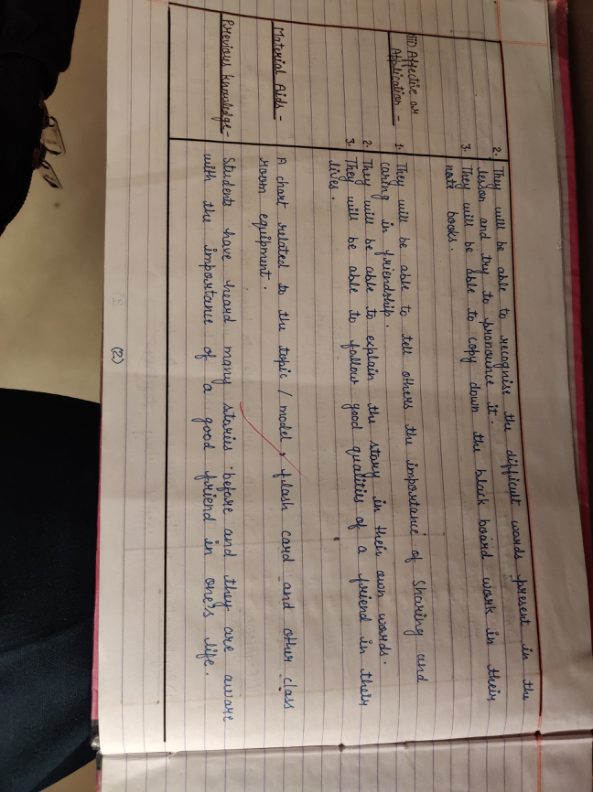 2. They will be able to recognise the difficult words present in the
lesson and try to pronounce it.
3. They will be able to copy down the black board work in their
note books.
iii) Affective or
Application -
1. They will be able to tell others the importance of Sharing and
caring in friendship.
2. They will be able to explain the story in their own words.
3. They will be able to follow good qualities of a friend in their
lives.
Material Aids - A chart related to the topic / model, flash card and other class
room equipment.
Previous knowledge - Students have heard many stories before and they are aware
with the importance of a good friend in one's life.
(2)